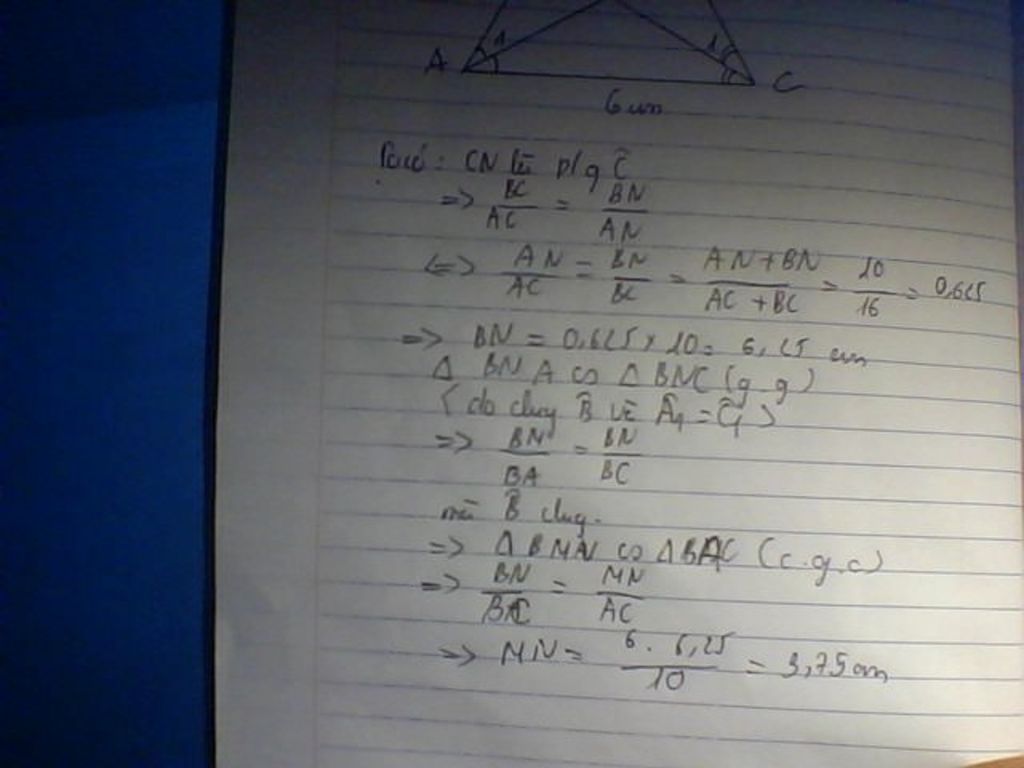 A 1 1 C
6 cm
Ta có: CN là p/g Ĉ
=> BC/AC = BN/AN
<=> AN/AC = BN/BC = AN+BN/AC+BC = 10/16 = 0,625
=> BN = 0,625 x 10 = 6,25 cm
Δ BNA ∽ Δ BNC (g.g)
(do chug B̂ và Â1 = Ĉ1)
=> BM/BA = BN/BC
mà B̂ chug.
=> Δ BMN ∽ Δ BAC (c.g.c)
=> BN/BC = MN/AC
=> MN = 6.6,25/10 = 3,75 cm